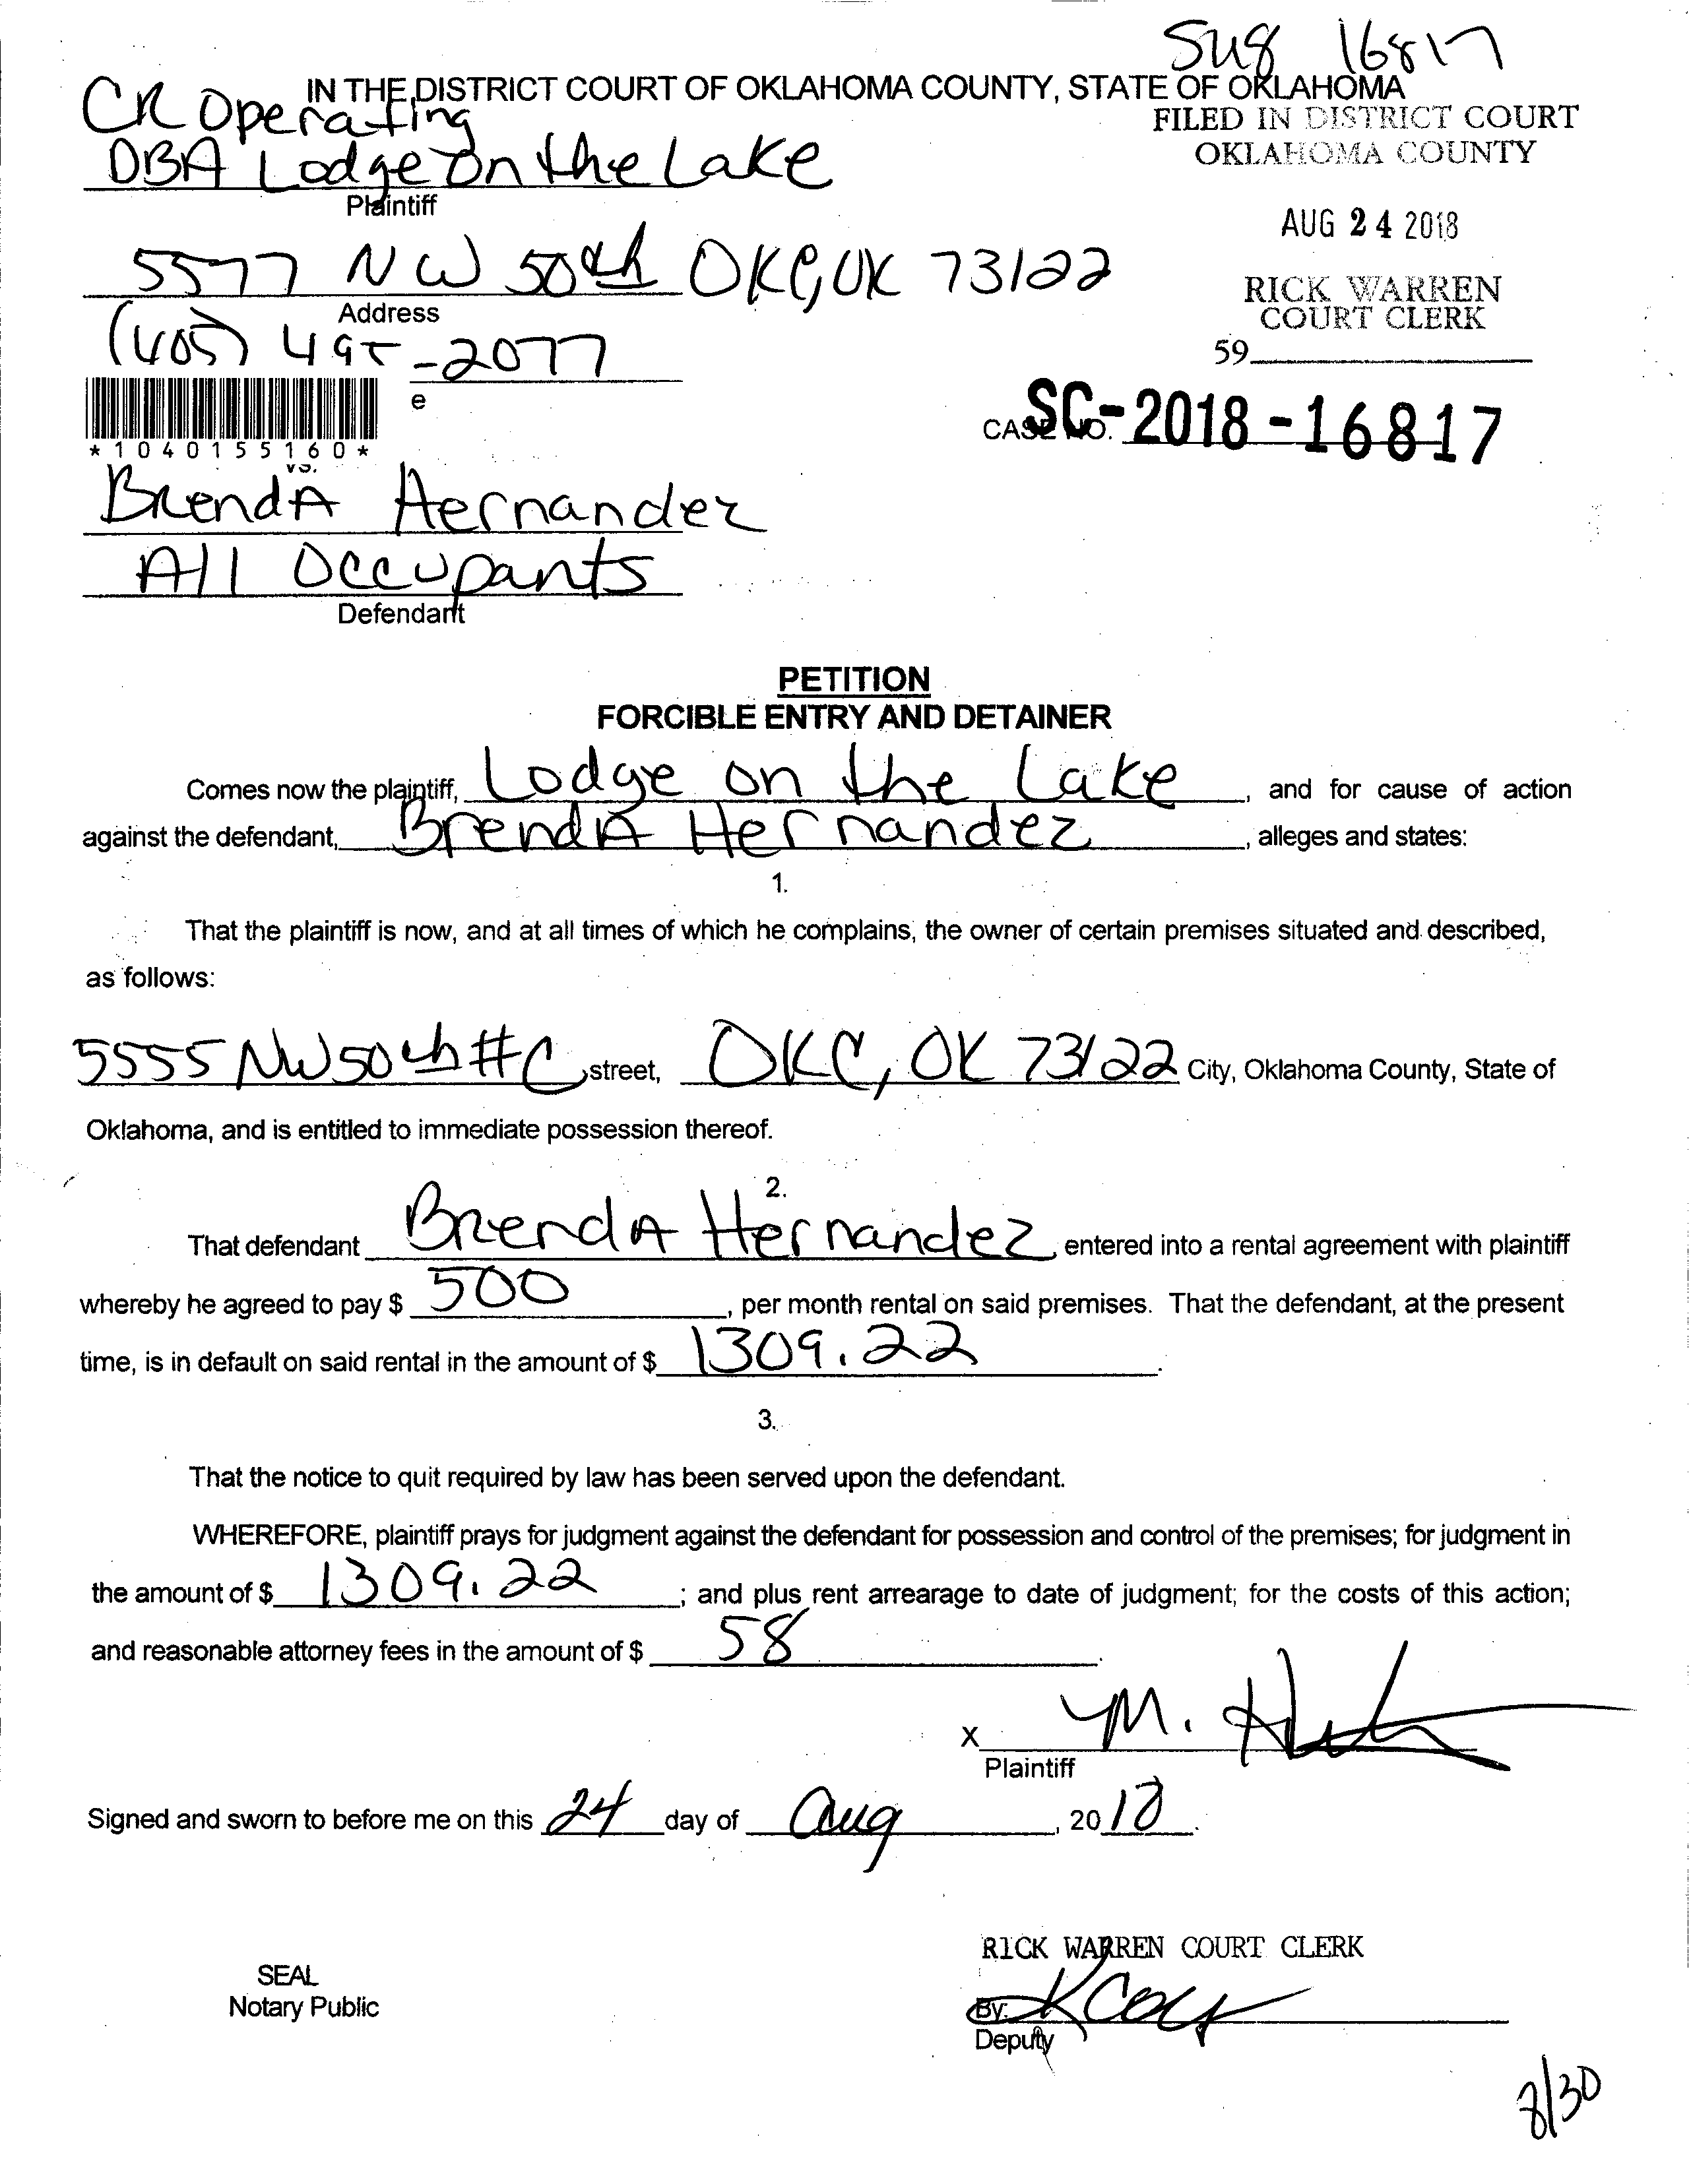 16817
IN THE DISTRICT COURT OF OKLAHOMA COUNTY, STATE OF OKLAHOMA
CR Operating
FILED IN DISTRICT COURT
OKLAHOMA COUNTY
DBA Lodge on the Lake
Plaintiff
AUG 24 2018
5577 NW 50th OKC, OK 73122
Address
RICK WARREN
COURT CLERK
(405) 495-2077
59
e
CASE NO. SC-2018-16817
*1040155160*
vs.
BrendA Hernandez
All Occupants
Defendant
PETITION
FORCIBLE ENTRY AND DETAINER
Comes now the plaintiff, Lodge on the Lake, and for cause of action
against the defendant, BrendA Hernandez, alleges and states:
1.
That the plaintiff is now, and at all times of which he complains, the owner of certain premises situated and described,
as follows:
5555 NW 50th #C street, OKC, OK 73122 City, Oklahoma County, State of
Oklahoma, and is entitled to immediate possession thereof.
2.
That defendant BrendA Hernandez entered into a rental agreement with plaintiff
whereby he agreed to pay $ 500, per month rental on said premises. That the defendant, at the present
time, is in default on said rental in the amount of $ 1309.22.
3.
That the notice to quit required by law has been served upon the defendant.
WHEREFORE, plaintiff prays for judgment against the defendant for possession and control of the premises; for judgment in
the amount of $ 1309.22; and plus rent arrearage to date of judgment; for the costs of this action;
and reasonable attorney fees in the amount of $ 58.
X M.
Plaintiff
Signed and sworn to before me on this 24 day of Aug, 2018.
RICK WARREN COURT CLERK
SEAL
Notary Public
By:
Deputy
8/30